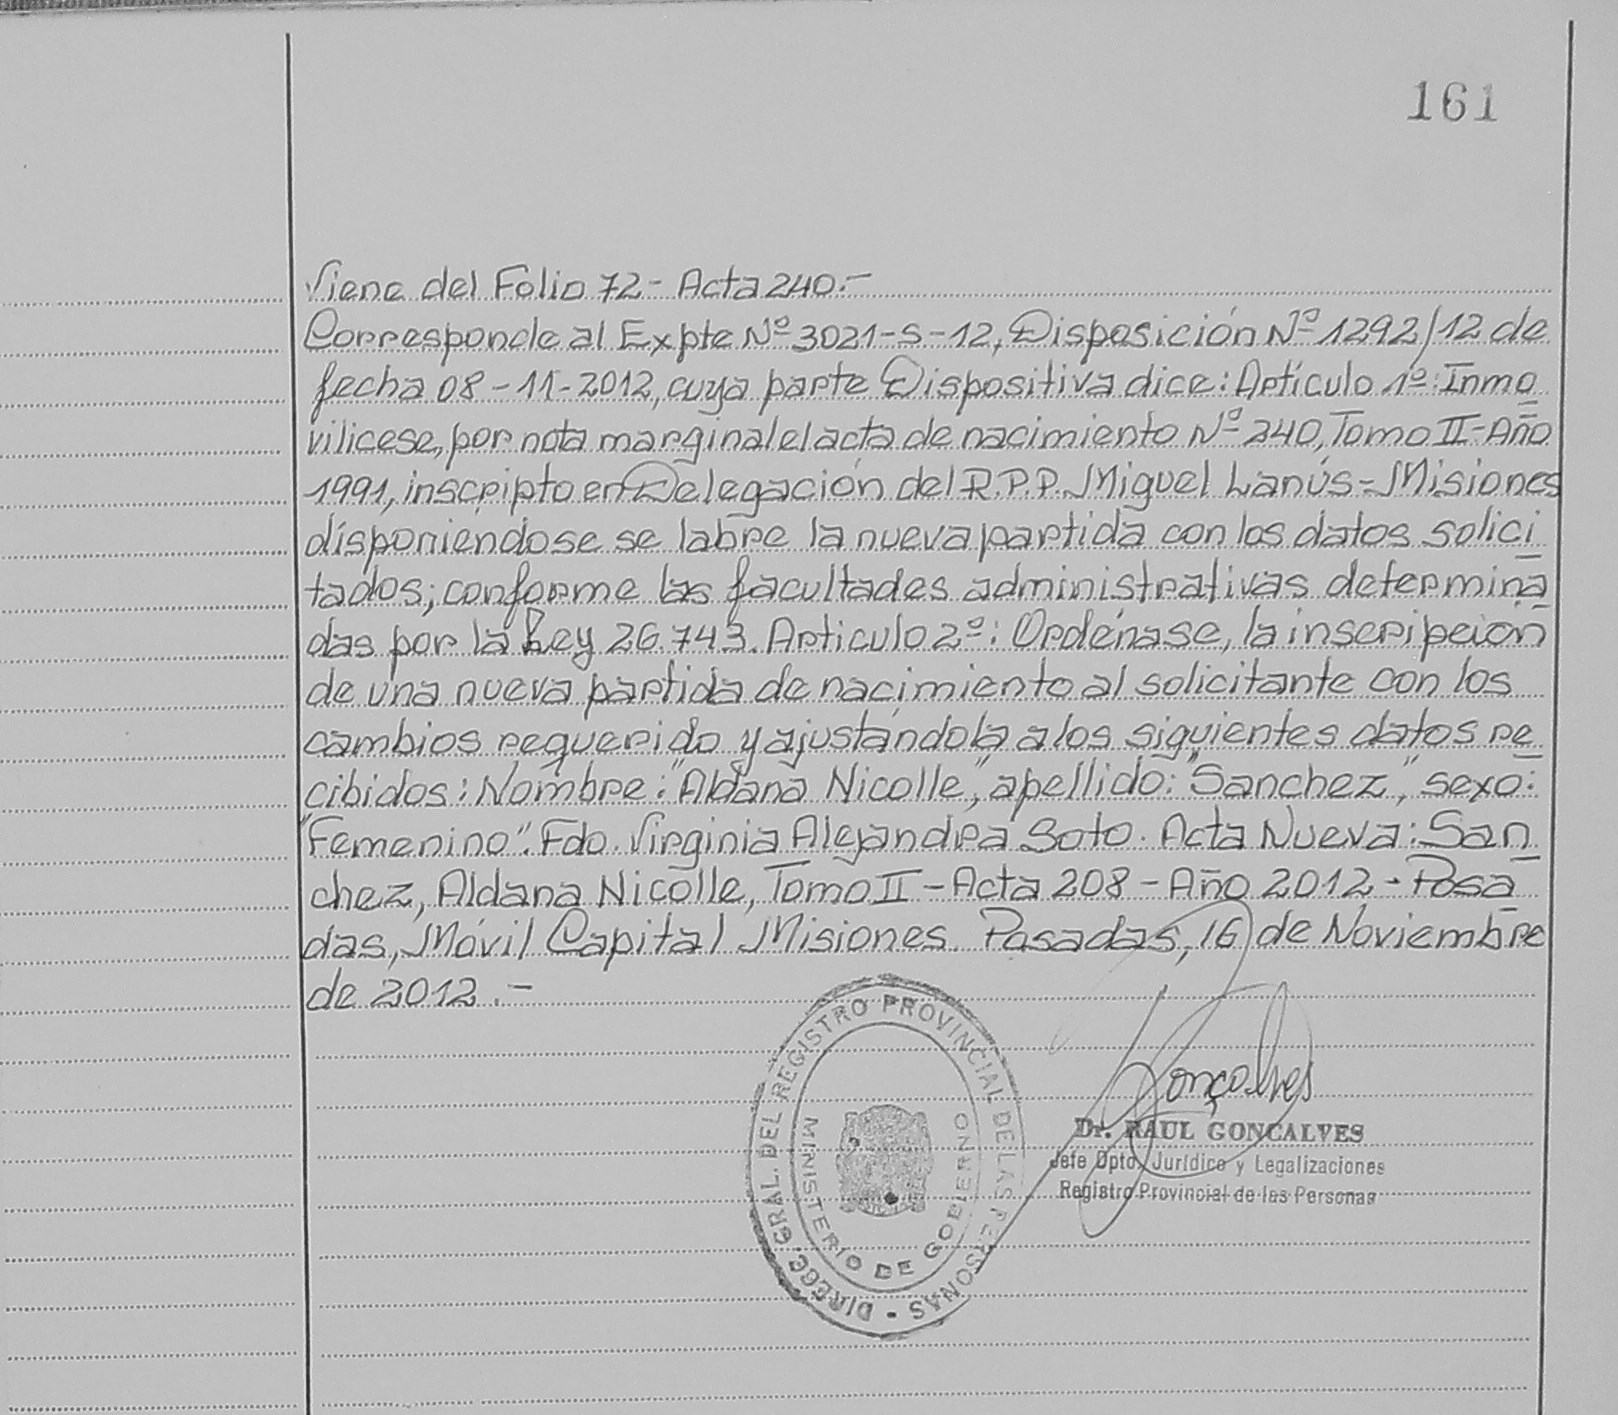 161
Viene del Folio 72- Acta 240.-
Corresponde al Expte Nº 3021-S-12, Disposición Nº 1292/12 de
fecha 08-11-2012, cuya parte Dispositiva dice: Artículo 1º: Inmo
vilicese, por nota marginal el acta de nacimiento Nº 240, Tomo II-Año
1991, inscripto en Delegación del R.P.P. Miguel Lanús-Misiones
disponiéndose se labre la nueva partida con los datos solici
tados; conforme las facultades administrativas determina
das por la Ley 26.743. Articulo 2º: Ordénase, la inscripcion
de una nueva partida de nacimiento al solicitante con los
cambios requerido y ajustándola a los siguientes datos re
cibidos: Nombre: "Aldana Nicolle", apellido: "Sanchez", sexo:
"Femenino". Fdo. Virginia Alejandra Soto. Acta Nueva: San
chez, Aldana Nicolle, Tomo II-Acta 208-Año 2012-Posa
das, Móvil Capital Misiones. Posadas, 16 de Noviembre
de 2012.-
DIREC. GRAL. DEL REGISTRO PROVINCIAL DE LAS PERSONAS -
MINISTERIO DE GOBIERNO
Gonçalves
Dr. RAUL GONCALVES
Jefe Dpto. Jurídico y Legalizaciones
Registro Provincial de las Personas